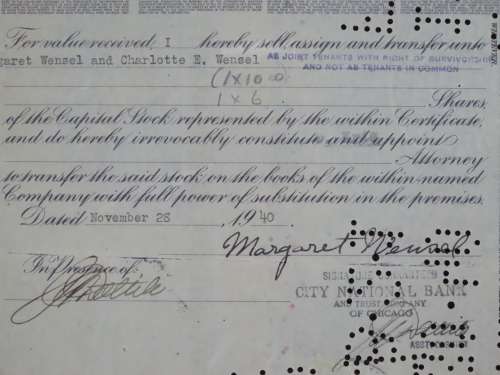 For value received, I hereby sell, assign and transfer unto
garet Wensel and Charlotte E. Wensel AS JOINT TENANTS WITH RIGHT OF SURVIVORSHIP
AND NOT AS TENANTS IN COMMON
(1x10
1x6 Shares
of the Capital Stock represented by the within Certificate,
and do hereby irrevocably constitute and appoint
Attorney
to transfer the said stock on the books of the within-named
Company with full power of substitution in the premises.
Dated November 28 1940
Margaret Wensel
In Presence of:
SIGNATURE GUARANTEED
CITY NATIONAL BANK
AND TRUST COMPANY
OF CHICAGO
ASST CASHIER